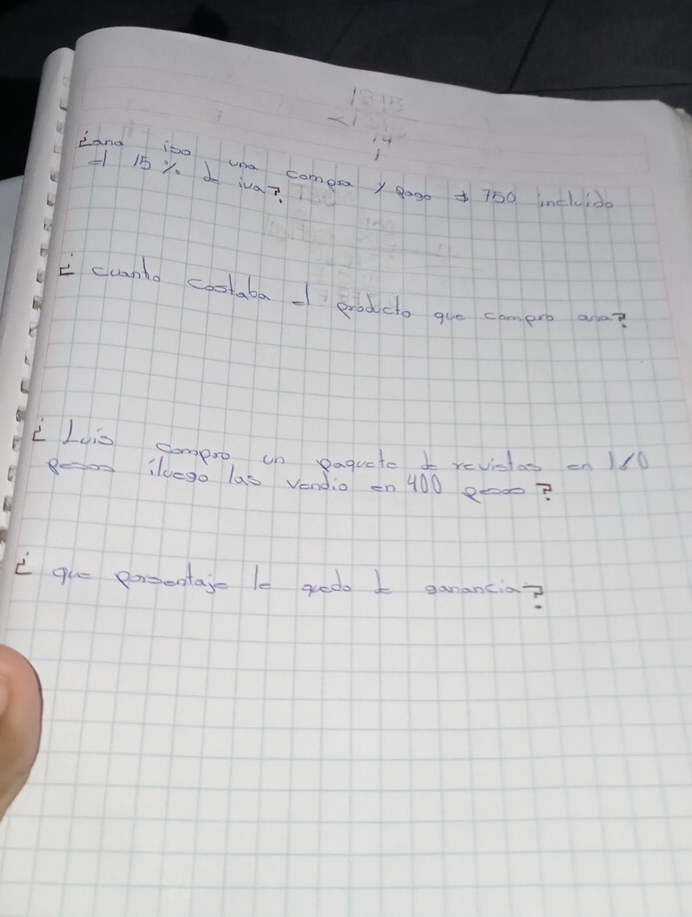 1315
<1
14
1
¿ana iso una compra y pago $ 750 incluido
el 15 % de iva?
¿ cuanto costaba el producto que compro ana?
¿ Luis compro un paquete de revistas en 160
pesos iluego las vendio en 400 pesos?
¿ que porsentaje le quedo de ganancia?